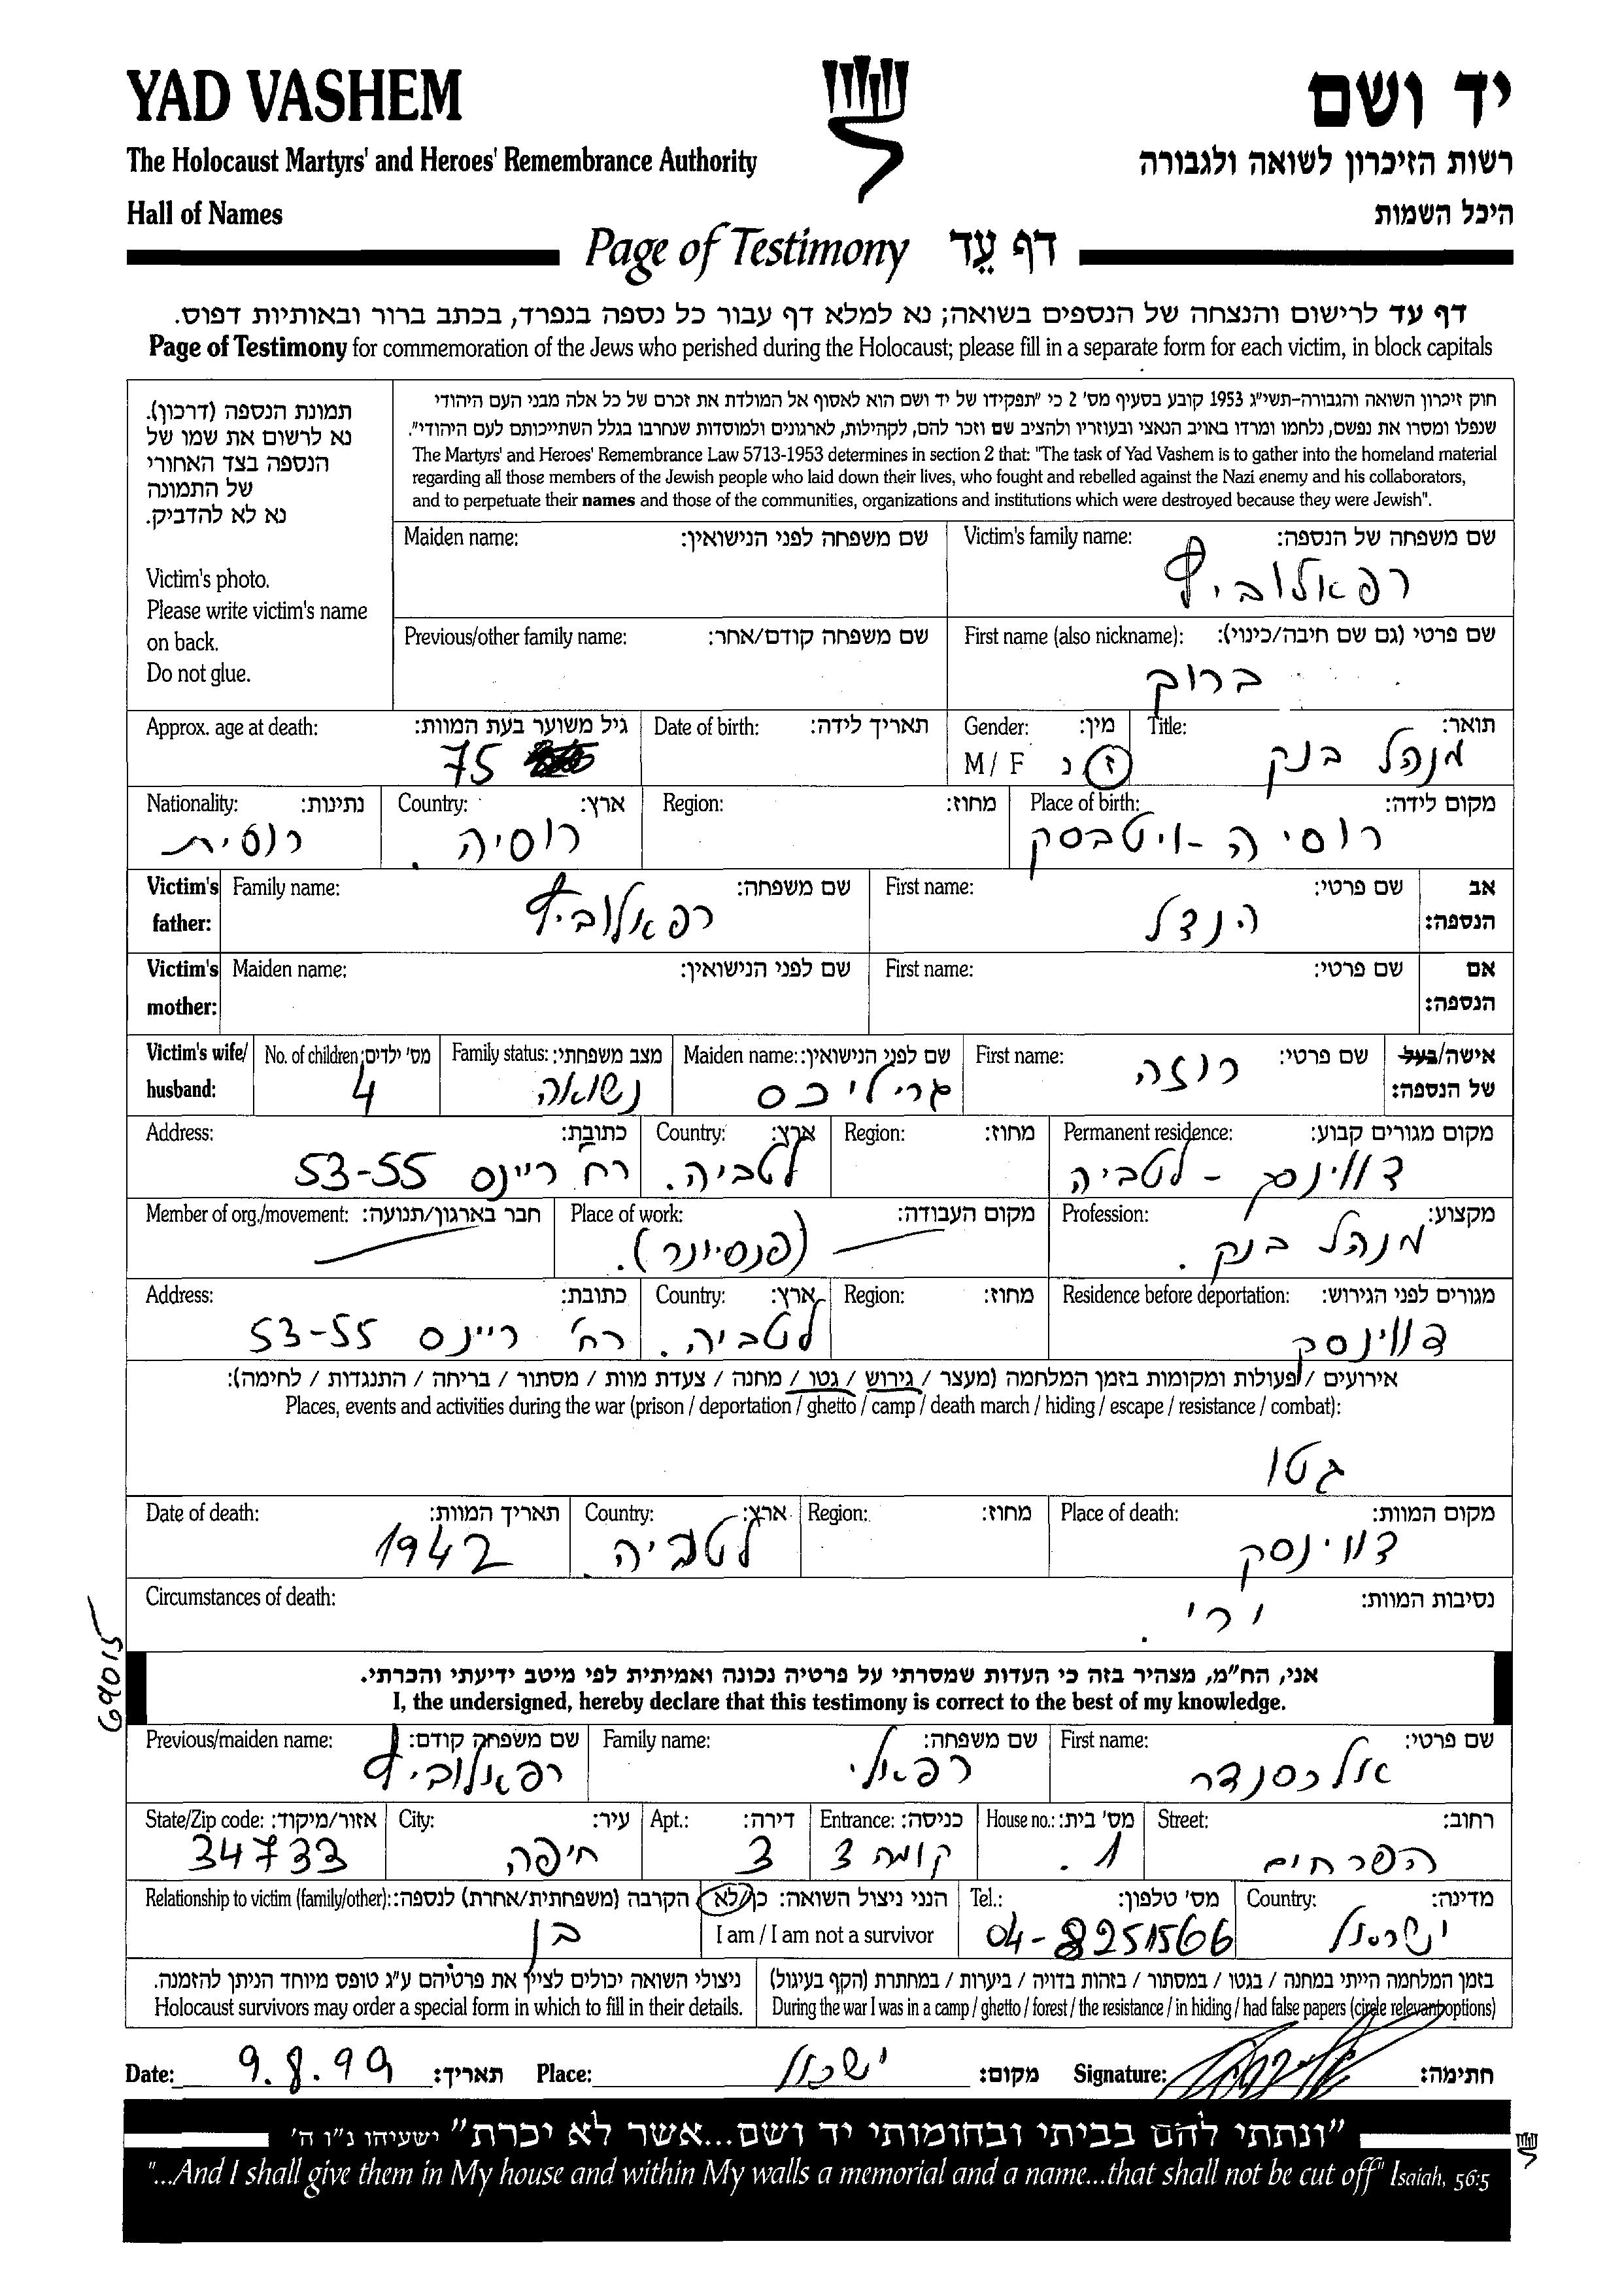 YAD VASHEM
יד ושם
The Holocaust Martyrs' and Heroes' Remembrance Authority
רשות הזיכרון לשואה ולגבורה
Hall of Names
היכל השמות
Page of Testimony דף עֵד
דף עד לרישום והנצחה של הנספים בשואה; נא למלא דף עבור כל נספה בנפרד, בכתב ברור ובאותיות דפוס.
Page of Testimony for commemoration of the Jews who perished during the Holocaust; please fill in a separate form for each victim, in block capitals
תמונת הנספה (דרכון).
נא לרשום את שמו של
הנספה בצד האחורי
של התמונה
נא לא להדביק.
Victim's photo.
Please write victim's name
on back.
Do not glue.
חוק זיכרון השואה והגבורה-תשי"ג 1953 קובע בסעיף מס' 2 כי "תפקידו של יד ושם הוא לאסוף אל המולדת את זכרם של כל אלה מבני העם היהודי
שנפלו ומסרו את נפשם, נלחמו ומרדו באויב הנאצי ובעוזריו ולהציב שם וזכר להם, לקהילות, לארגונים ולמוסדות שנחרבו בגלל השתייכותם לעם היהודי".
The Martyrs' and Heroes' Remembrance Law 5713-1953 determines in section 2 that: "The task of Yad Vashem is to gather into the homeland material
regarding all those members of the Jewish people who laid down their lives, who fought and rebelled against the Nazi enemy and his collaborators,
and to perpetuate their names and those of the communities, organizations and institutions which were destroyed because they were Jewish".
Victim's family name: שם משפחה של הנספה:
רפאלוביץ
Maiden name: שם משפחה לפני הנישואין:
First name (also nickname): שם פרטי (גם שם חיבה/כינוי):
ברוך
Previous/other family name: שם משפחה קודם/אחר:
Title: תואר:
מנהל בנק
Gender: מין:
M / F ז נ
Date of birth: תאריך לידה:
Approx. age at death: גיל משוער בעת המוות:
75
Place of birth: מקום לידה:
רוסיה - ויטבסק
Region: מחוז:
Country: ארץ:
רוסיה.
Nationality: נתינות:
רוסית
Victim's father: אב הנספה:
First name: שם פרטי:
הנדל
Family name: שם משפחה:
רפאלוביץ
Victim's mother: אם הנספה:
First name: שם פרטי:
Maiden name: שם לפני הנישואין:
Victim's wife/ husband: אישה/בעל של הנספה:
First name: שם פרטי:
רוזה
Maiden name: שם לפני הנישואין:
גרייליכס
Family status: מצב משפחתי:
נשואה
No. of children: מס' ילדים:
4
Permanent residence: מקום מגורים קבוע:
דווינסק - לטביה
Region: מחוז:
Country: ארץ:
לטביה.
Address: כתובת:
רח' ריינס 53-55
Profession: מקצוע:
מנהל בנק.
Place of work: מקום העבודה:
(פנסיונר).
Member of org./movement: חבר בארגון/תנועה:
Residence before deportation: מגורים לפני הגירוש:
דווינסק
Region: מחוז:
Country: ארץ:
לטביה.
Address: כתובת:
רח' ריינס 53-55
אירועים / פעולות ומקומות בזמן המלחמה (מעצר / גירוש / גטו / מחנה / צעדת מוות / מסתור / בריחה / התנגדות / לחימה):
Places, events and activities during the war (prison / deportation / ghetto / camp / death march / hiding / escape / resistance / combat):
גטו
Place of death: מקום המוות:
דווינסק
Region: מחוז:
Country: ארץ:
לטביה.
Date of death: תאריך המוות:
1942
Circumstances of death: נסיבות המוות:
ירי.
69015
אני, הח"מ, מצהיר בזה כי העדות שמסרתי על פרטיה נכונה ואמיתית לפי מיטב ידיעתי והכרתי.
I, the undersigned, hereby declare that this testimony is correct to the best of my knowledge.
First name: שם פרטי:
אלכסנדר
Family name: שם משפחה:
רפאלי
Previous/maiden name: שם משפחה קודם:
רפאלוביץ
Street: רחוב:
הפרחים
House no.: מס' בית:
1.
Entrance: כניסה:
קומה 3
Apt.: דירה:
3
City: עיר:
חיפה
State/Zip code: אזור/מיקוד:
34733
Country: מדינה:
ישראל
Tel.: מס' טלפון:
04-8251566
הנני ניצול השואה: כן/לא
I am / I am not a survivor
Relationship to victim (family/other): הקרבה (משפחתית/אחרת) לנספה:
בן
בזמן המלחמה הייתי במחנה / בגטו / במסתור / בזהות בדויה / ביערות / במחתרת (הקף בעיגול)
During the war I was in a camp / ghetto / forest / the resistance / in hiding / had false papers (circle relevant options)
ניצולי השואה יכולים לציין את פרטיהם ע"ג טופס מיוחד הניתן להזמנה.
Holocaust survivors may order a special form in which to fill in their details.
Date: 9.8.99 תאריך: Place: ישראל מקום: Signature: חתימה:
"ונתתי להם בביתי ובחומותי יד ושם...אשר לא יכרת" ישעיהו נ"ו ה'
"...And I shall give them in My house and within My walls a memorial and a name...that shall not be cut off" Isaiah, 56:5